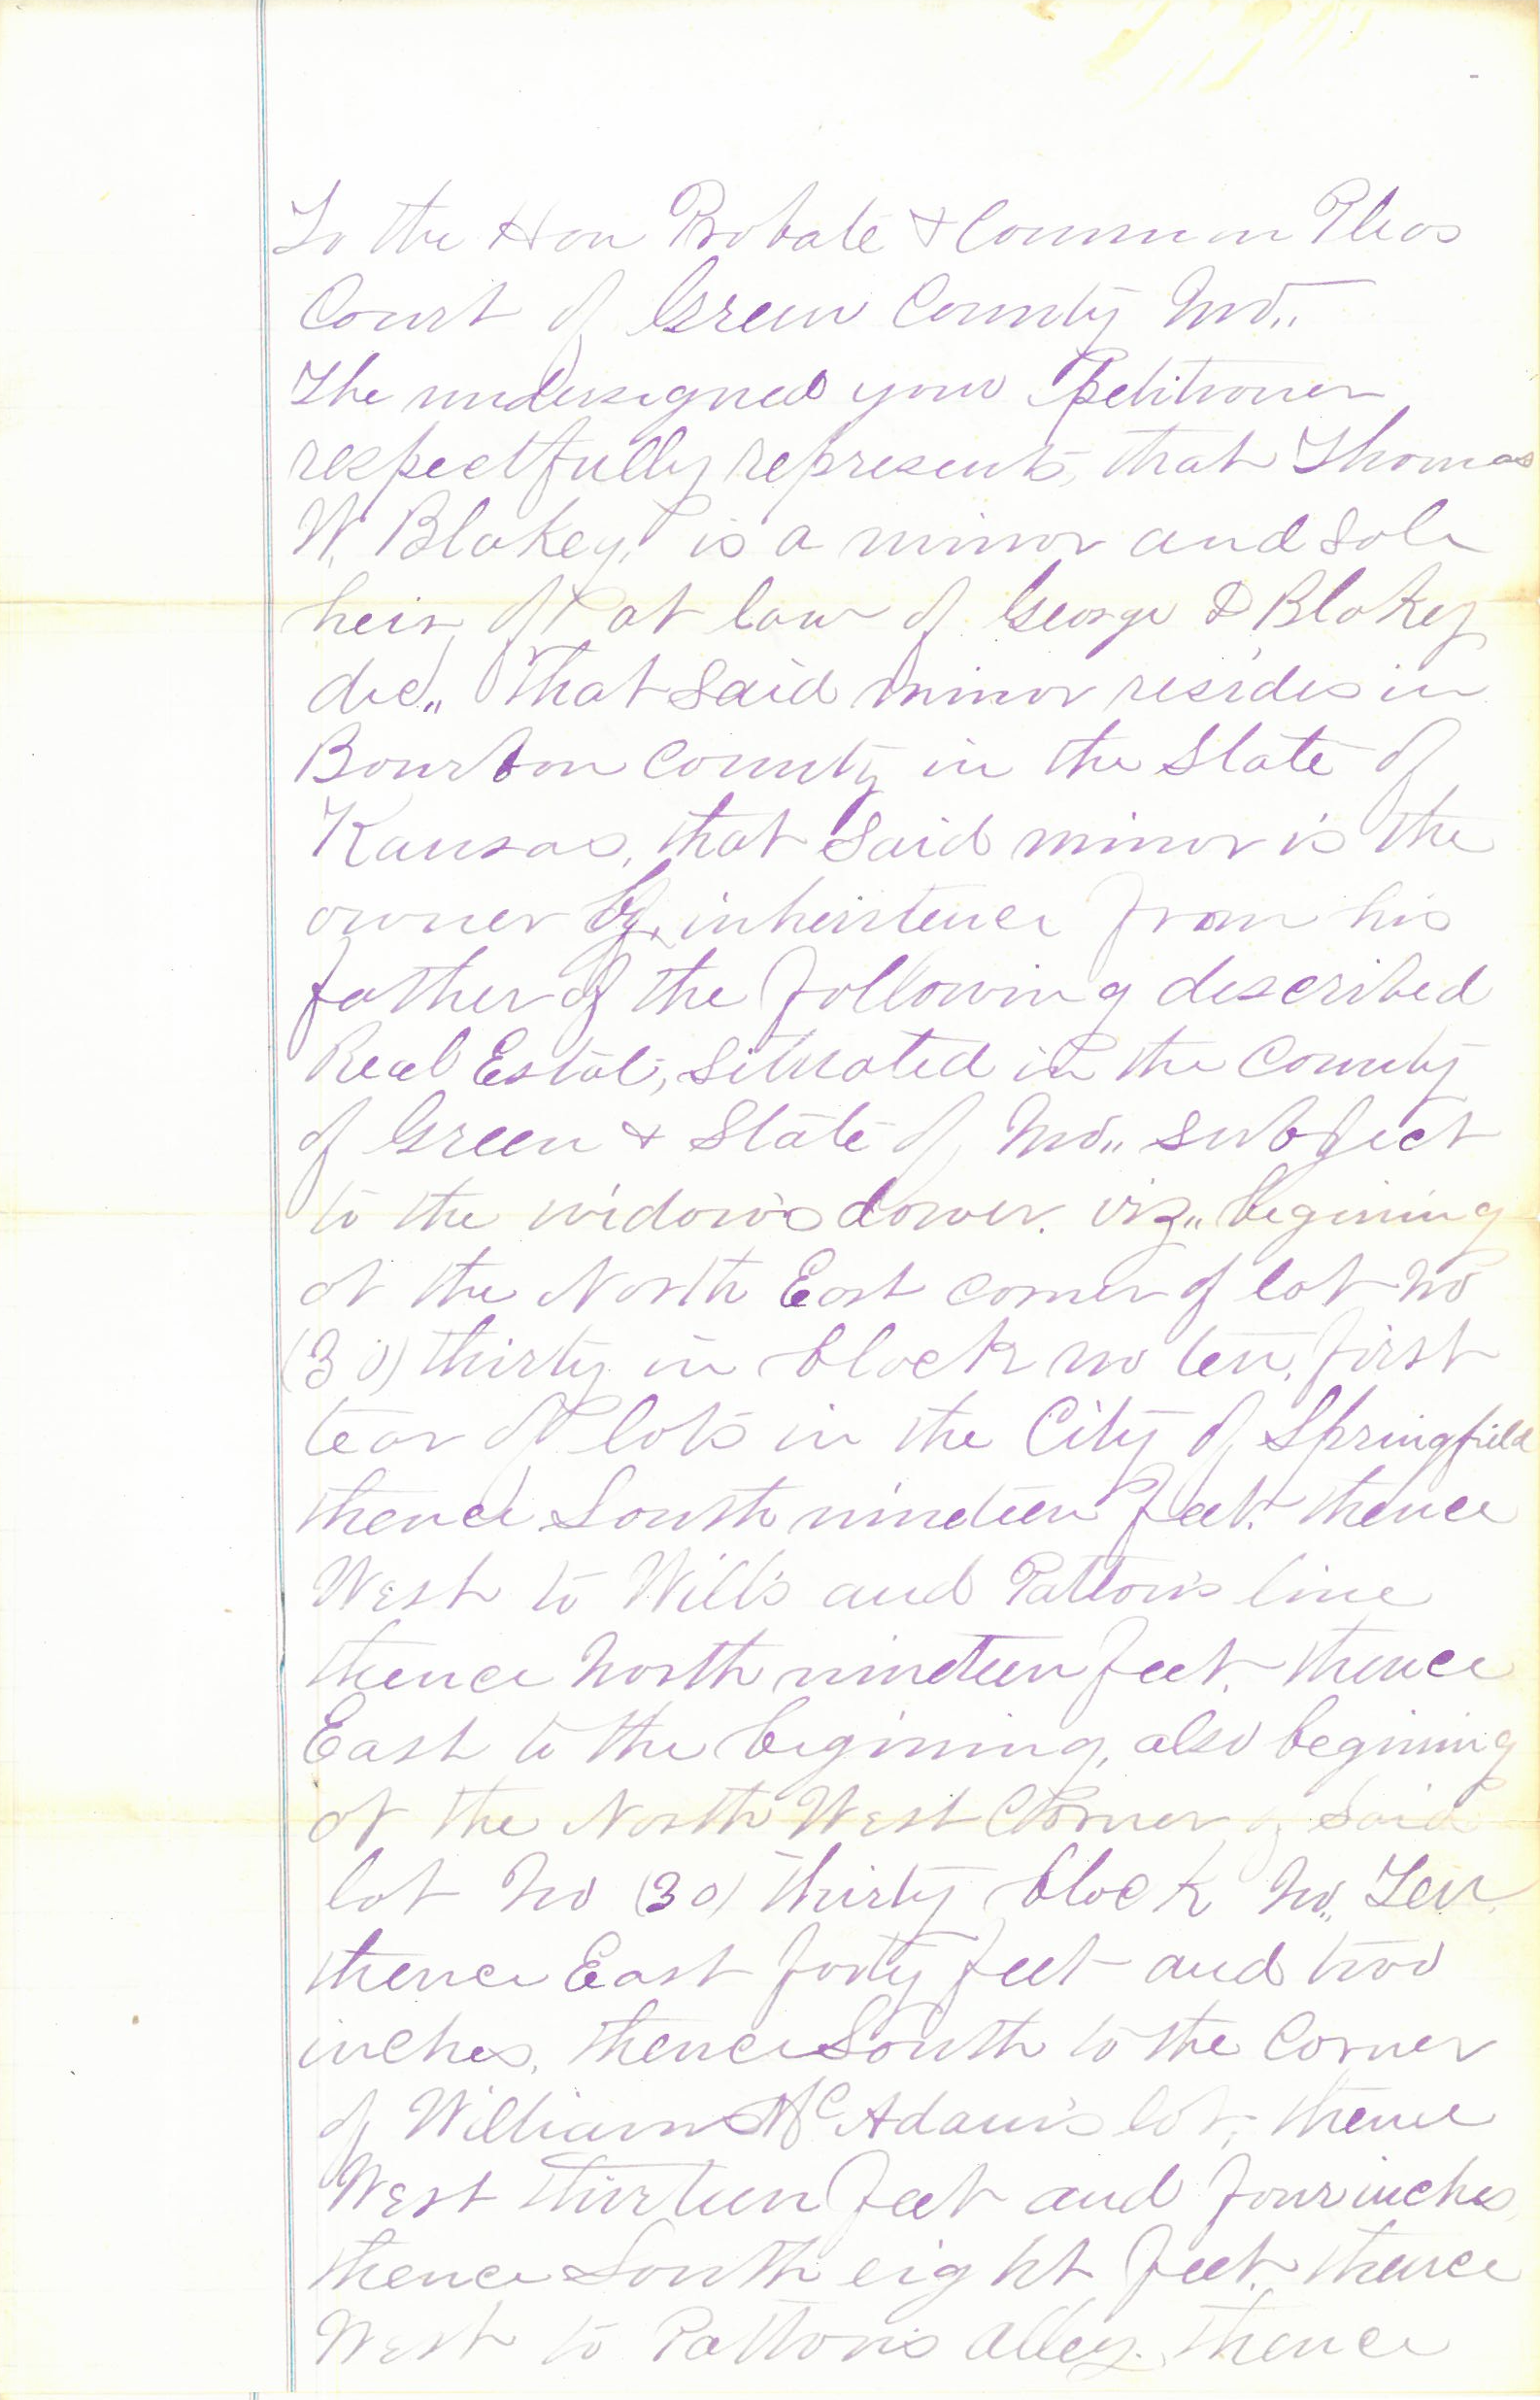 To the Hon Probate & Common Pleas
Court of Green County Mo,,
The undersigned your petitioner
respectfully represents, that Thomas
W. Blakey, is a minor and sole
heir of at law of George D Blakey
decd,, That said minor resides in
Bourbon County in the State of
Kansas, that said minor is the
owner by inheritence from his
father of the following described
Real Estate, situated in the County
of Green & State of Mo,, subject
to the widow's dower. viz,, begining
at the North East corner of lot No
(30) thirty in block no ten, first
tear of lots in the City of Springfield
thence South nineteen feet. thence
West to Wills and Patton's line
thence North nineteen feet, thence
East to the begining, also begining
at the North West Corner of said
lot No (30) thirty block No,, Ten
thence East forty feet and two
inches, thence South to the Corner
of William McAdam's lot, thence
West thirteen feet and four inches,
thence South eight feet, thence
West to Patton's alley, thence